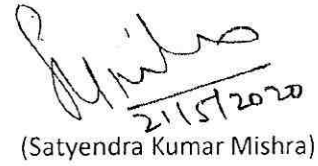 21/5/2020
(Satyendra Kumar Mishra)